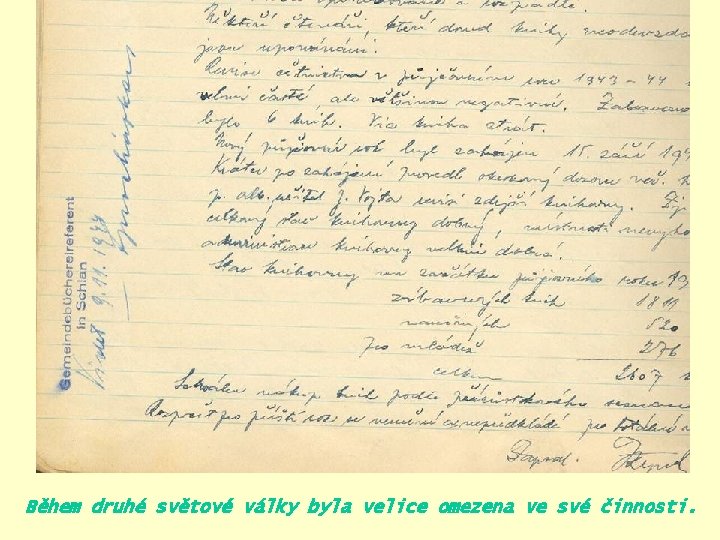 Někteří čtenáři, kteří dosud knihy neodevzda
jsou upomínáni.
Revise četnictva v půjčovním roce 1943-44
velmi časté, ale většinou negativní. Zabaveno
bylo 6 knih. Viz kniha ztrát.
Nový půjčovní rok byl zahájen 15. září 194
Krátce po zahájení provedl okresní dozorce veř.
p. odb. učitel J. Vojta revisi zdejší knihovny.
celkový stav knihovny dobrý, místnost nevyho
administrace knihovny velmi dobrá.
Stav knihovny na začátku půjčovního roku
zábavných knih 1811
naučných 520
pro mládež 276
celkem 2607
Schválen nákup knih podle přírůstkového seznamu
Rozpočet pro příští rok se nemění
Zapsal
Gemeindebüchereireferent
in Schlan
Vidět 9.11.1944
Během druhé světové války byla velice omezena ve své činnosti.